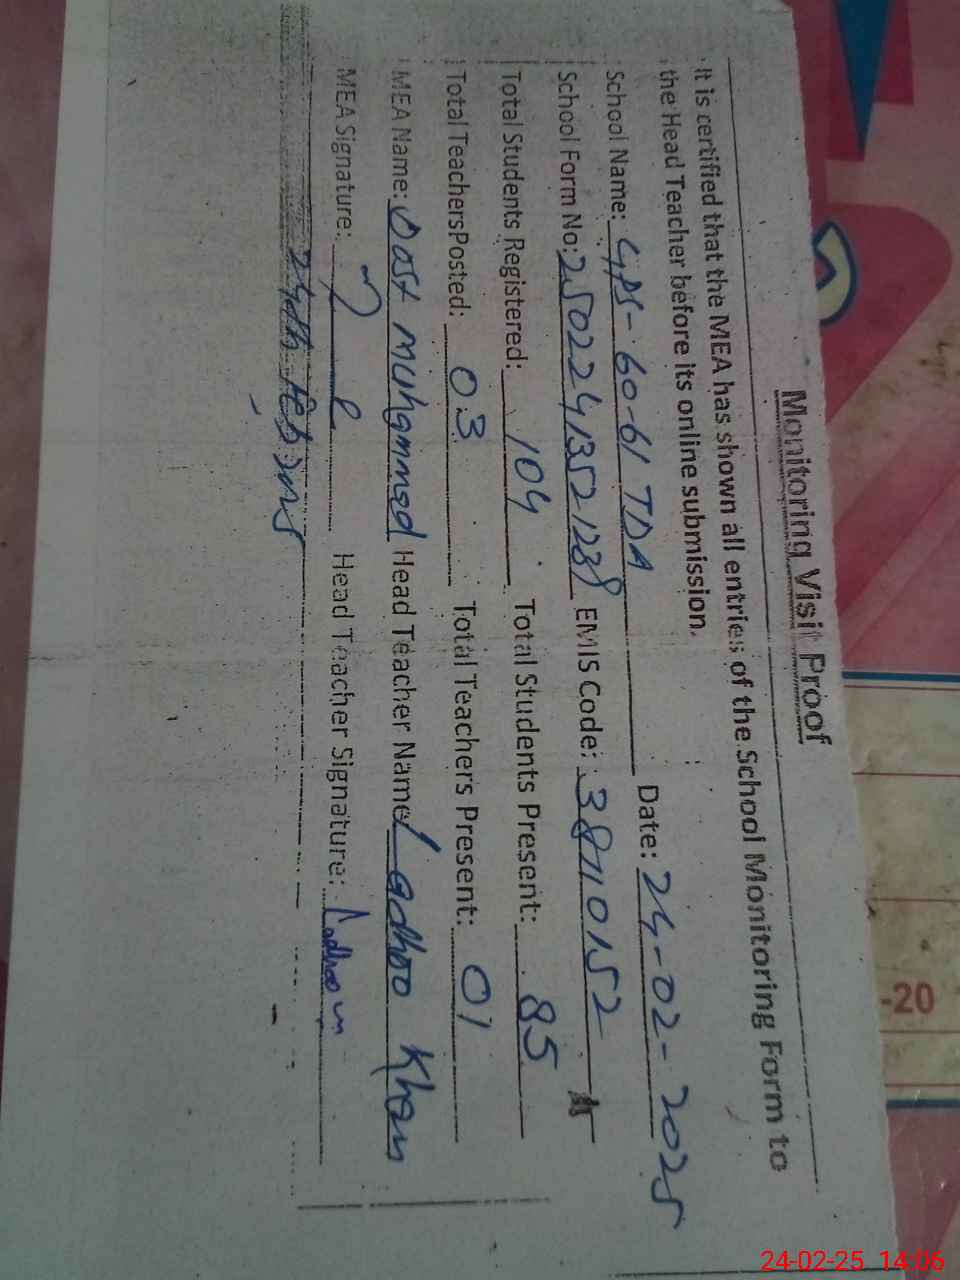 Monitoring Visit Proof
It is certified that the MEA has shown all entries of the School Monitoring Form to
the Head Teacher before its online submission.
School Name: GPS-60-61 TDA Date: 24-02-2025
School Form No: 25022413521238 EMIS Code: 38110152
Total Students Registered: 104 Total Students Present: 85
Total TeachersPosted: 03 Total Teachers Present: 01
MEA Name: Dost Muhammed Head Teacher Name Ladhoo Khan
MEA Signature: Head Teacher Signature:
24th Feb 2025
-20
24-02-25 14:06